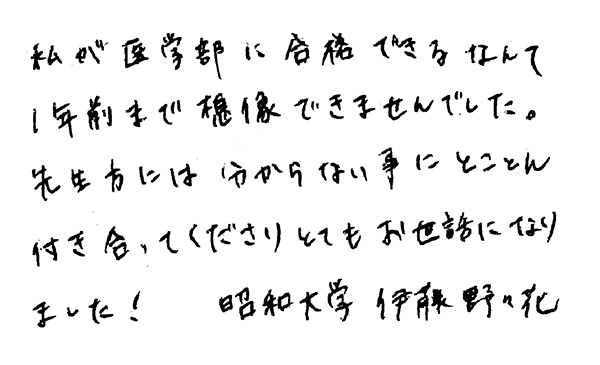 私が医学部に合格できるなんて
1年前まで想像できませんでした。
先生方には分からない事にとことん
付き合ってくださりとてもお世話になり
ました! 昭和大学 伊藤野々花